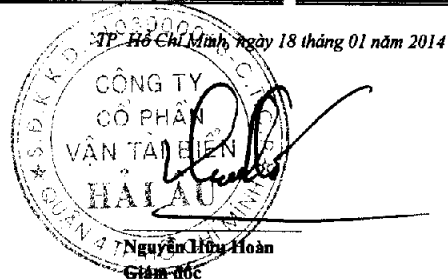 TP. Hồ Chí Minh, ngày 18 tháng 01 năm 2014
CÔNG TY
CỔ PHẦN
VẬN TẢI BIỂN
HẢI ÂU
Nguyễn Hữu Hoàn
Giám đốc